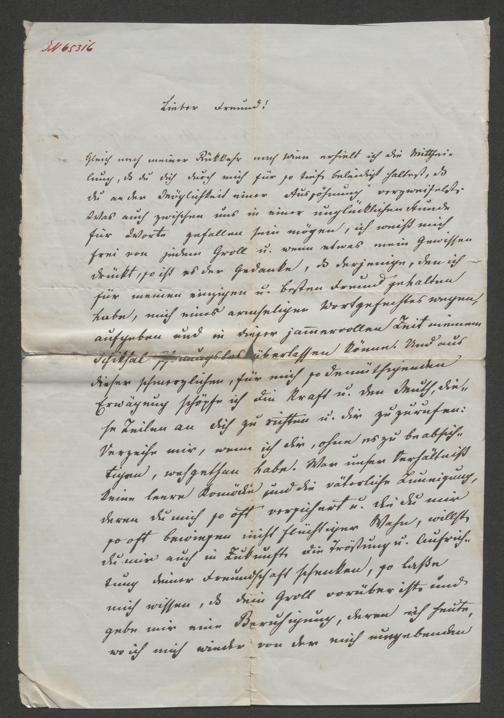 IN 65316
Lieber Freund!
Gleich nach meiner Rükkehr nach Wien erhielt ich die Mitthei-
lung, daß du dich durch mich für so tief beleidigt haltest, daß
du an der Möglichkeit einer Aussöhnung verzweifelst.
Was auch zwischen uns in einer unglücklichen Stunde
für Worte gefallen sein mögen, ich weiß mich
frei von jedem Groll u. wenn etwas mein Gewissen
drückt, so ist es der Gedanke, daß derjenige, den ich
für meinen einzigen u. besten Freund gehalten
habe, mich eines armseligen Wortgefechtes wegen,
aufgeben und in dieser jammervollen Zeit meinem
Schiksal überlassen könne. Und aus
dieser schmerzlichen, für mich so demüthigenden
Erwägung schöpfe ich die Kraft u. den Muth, die-
se Zeilen an dich zu richten u. dir zuzurufen:
Verzeihe mir, wenn ich dir, ohne es zu beabsich-
tigen, wehgethan habe. War unser Verhältniß
keine leere Komödie und die väterliche Zuneigung,
deren du mich so oft versichert u. die du mir
so oft bewiesen nicht flüchtiger Wahn, willst
du mir auch in Zukunft die Tröstung u. Aufrich-
tung deiner Freundschaft schenken, so lasse
mich wissen, daß dein Groll vorüber ist und
gebe mir eine Beruhigung, deren ich heute,
wo ich mich wieder von der mich umgebenden